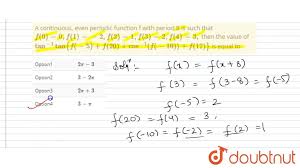 A continuous, even periodic function f with period 8 is such that
f(0) = 0, f(1) = - 2, f(2) = 1, f(3) = 2, f(4) = 3, then the value of
tan⁻¹ tan{f( - 5) + f(20) + cos⁻¹(f( - 10)) + f(17)} is equal to
Option1 2π - 3
Option2 3 - 2π
Option3 2π + 3
Option4 3 - π
Solⁿ:
f(x) = f(x+8)
f(3) = f(3-8) = f(-5)
f(-5) = 2
f(20) = f(4) = 3,
f(-10) = f(-2) = f(2) = 1
doubtnut